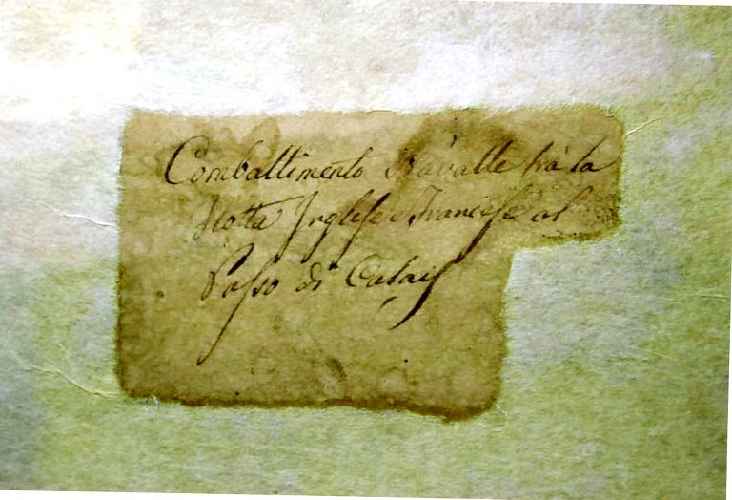 Combattimento Navalle frà la
Flotta Inglese e Francese al
Passo di Calais